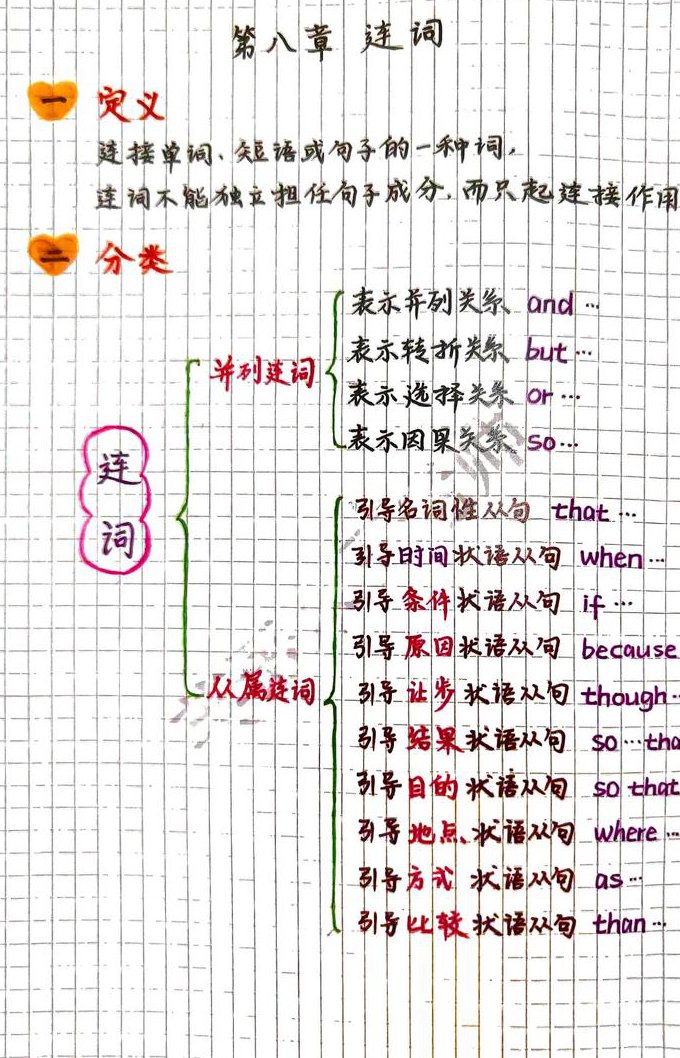 第八章 连词
一 定义
连接单词、短语或句子的一种词,
连词不能独立担任句子成分,而只起连接作用
二 分类
连词
并列连词
表示并列关系 and …
表示转折关系 but …
表示选择关系 or …
表示因果关系 so …
从属连词
引导名词性从句 that …
引导时间状语从句 when …
引导条件状语从句 if …
引导原因状语从句 because
引导让步状语从句 though …
引导结果状语从句 so … tha
引导目的状语从句 so that
引导地点状语从句 where …
引导方式状语从句 as …
引导比较状语从句 than …